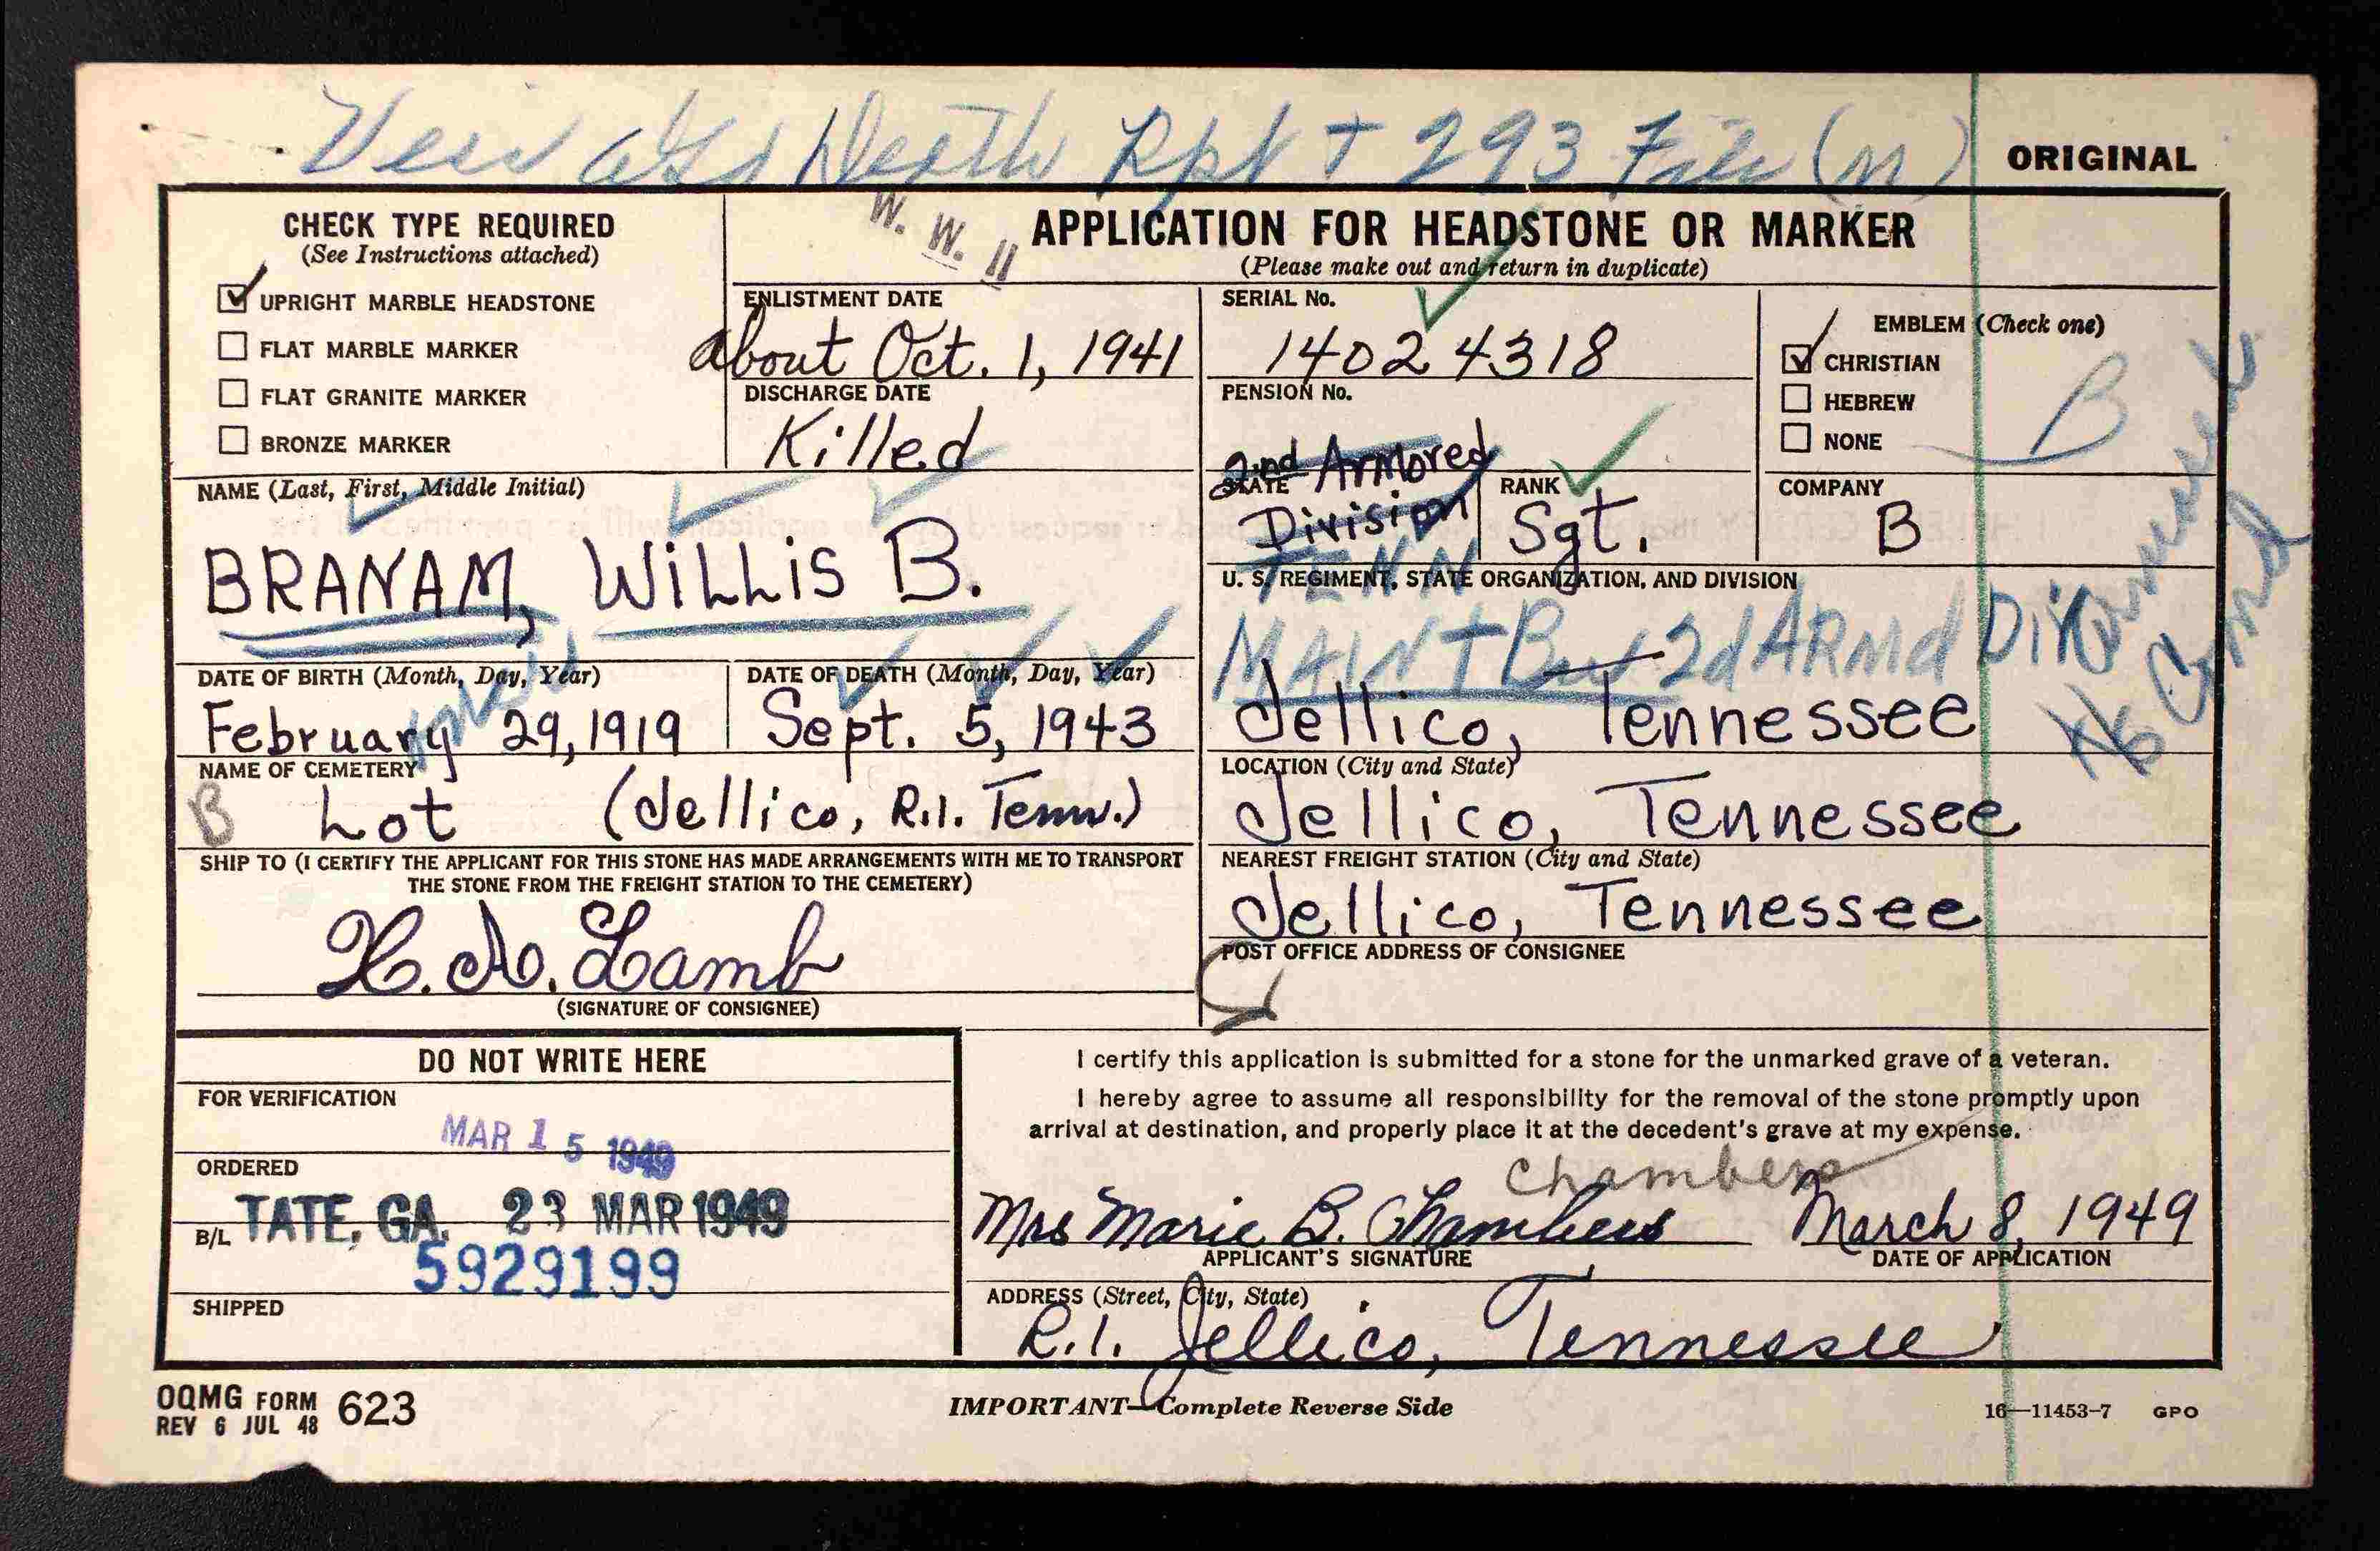 Death Rpt + 293 File (M)
ORIGINAL
CHECK TYPE REQUIRED
(See Instructions attached)
UPRIGHT MARBLE HEADSTONE
FLAT MARBLE MARKER
FLAT GRANITE MARKER
BRONZE MARKER
W. W. II
APPLICATION FOR HEADSTONE OR MARKER
(Please make out and return in duplicate)
ENLISTMENT DATE
about Oct. 1, 1941
DISCHARGE DATE
Killed
SERIAL No.
14024318
PENSION No.
EMBLEM (Check one)
CHRISTIAN
HEBREW
NONE
B
NAME (Last, First, Middle Initial)
BRANAM, WILLIS B.
2nd Armored
STATE
Division
TENN
RANK
Sgt.
COMPANY
B
U. S. REGIMENT, STATE ORGANIZATION, AND DIVISION
MAINT Bn 2d ARMd Div
Jellico, Tennessee
DATE OF BIRTH (Month, Day, Year)
February 29, 1919
DATE OF DEATH (Month, Day, Year)
Sept. 5, 1943
NAME OF CEMETERY
B Lot (Jellico, R.1. Tenn.)
LOCATION (City and State)
Jellico, Tennessee
SHIP TO (I CERTIFY THE APPLICANT FOR THIS STONE HAS MADE ARRANGEMENTS WITH ME TO TRANSPORT
THE STONE FROM THE FREIGHT STATION TO THE CEMETERY)
H. A. Lamb
(SIGNATURE OF CONSIGNEE)
NEAREST FREIGHT STATION (City and State)
Jellico, Tennessee
POST OFFICE ADDRESS OF CONSIGNEE
DO NOT WRITE HERE
FOR VERIFICATION
MAR 15 1949
ORDERED
TATE, GA. 23 MAR 1949
B/L
5929199
SHIPPED
I certify this application is submitted for a stone for the unmarked grave of a veteran.
I hereby agree to assume all responsibility for the removal of the stone promptly upon
arrival at destination, and properly place it at the decedent's grave at my expense.
Chambers
Mrs Marie B. Chambers March 8, 1949
APPLICANT'S SIGNATURE
DATE OF APPLICATION
ADDRESS (Street, City, State)
R.1. Jellico, Tennessee
OQMG FORM 623
REV 6 JUL 48
IMPORTANT—Complete Reverse Side
16—11453-7 GPO